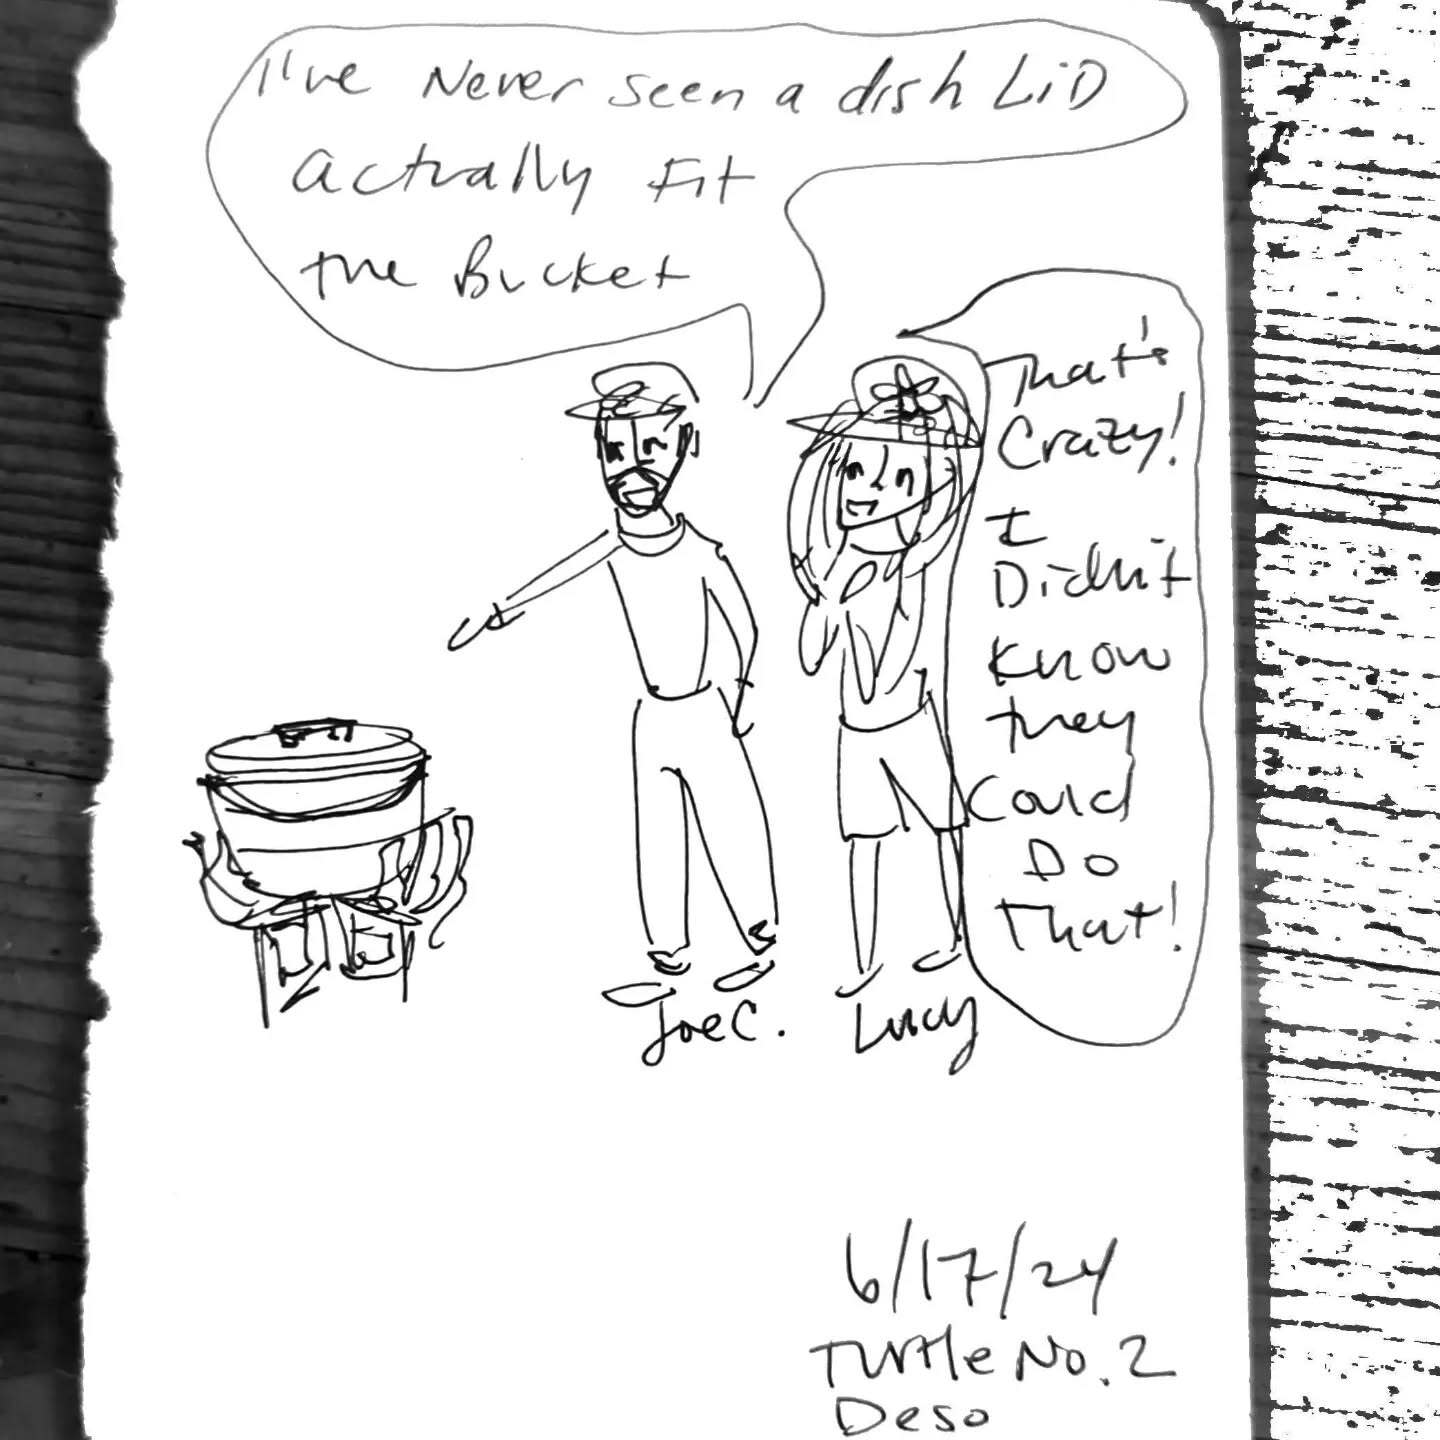 I've Never seen a dish LiD
actually Fit
the Bucket
That's
Crazy!
I
Didn't
Know
they
Could
Do
That!
Joe C.
Lucy
6/17/24
Turtle No. 2
Deso